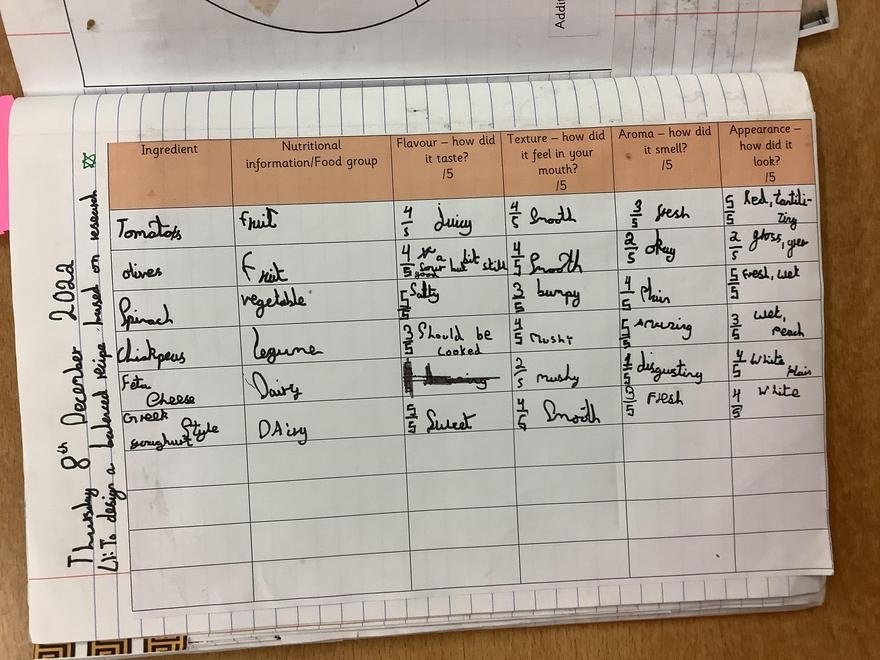 Addi
Thursday 8th December 2022
LI: To design a balanced recipe based on research
Ingredient
Nutritional
information/Food group
Flavour – how did
it taste?
/5
Texture – how did
it feel in your
mouth?
/5
Aroma – how did
it smell?
/5
Appearance –
how did it
look?
/5
Tomatoes
Fruit
4/5 Juicy
4/5 Smooth
3/5 fresh
5/5 Red, tantili-
zing
olives
Fruit
4/5 a bit
sour but still
good
4/5 Smooth
2/5 okay
2/5 gloss,
Spinach
vegetable
5/5 Salty
3/5 bumpy
4/5 Plain
5/5 Fresh, wet
Chickpeas
legume
3/5 Should be
cooked
4/5 Mushy
5/5 Amazing
3/5 wet,
peach
Feta
Cheese
Dairy
2/5 mushy
1/5 disgusting
4/5 White
Plain
Greek
Style
youghurt
DAiry
5/5 Sweet
4/5 Smooth
3/5 Fresh
4/5 White